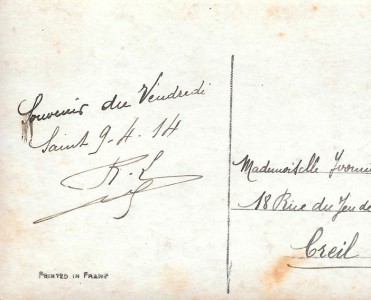 Souvenir du Vendredi
Saint 9-4-14
R.L
PRINTED IN FRANCE
Mademoiselle Yvonn
18 Rue du Jeu de
Creil